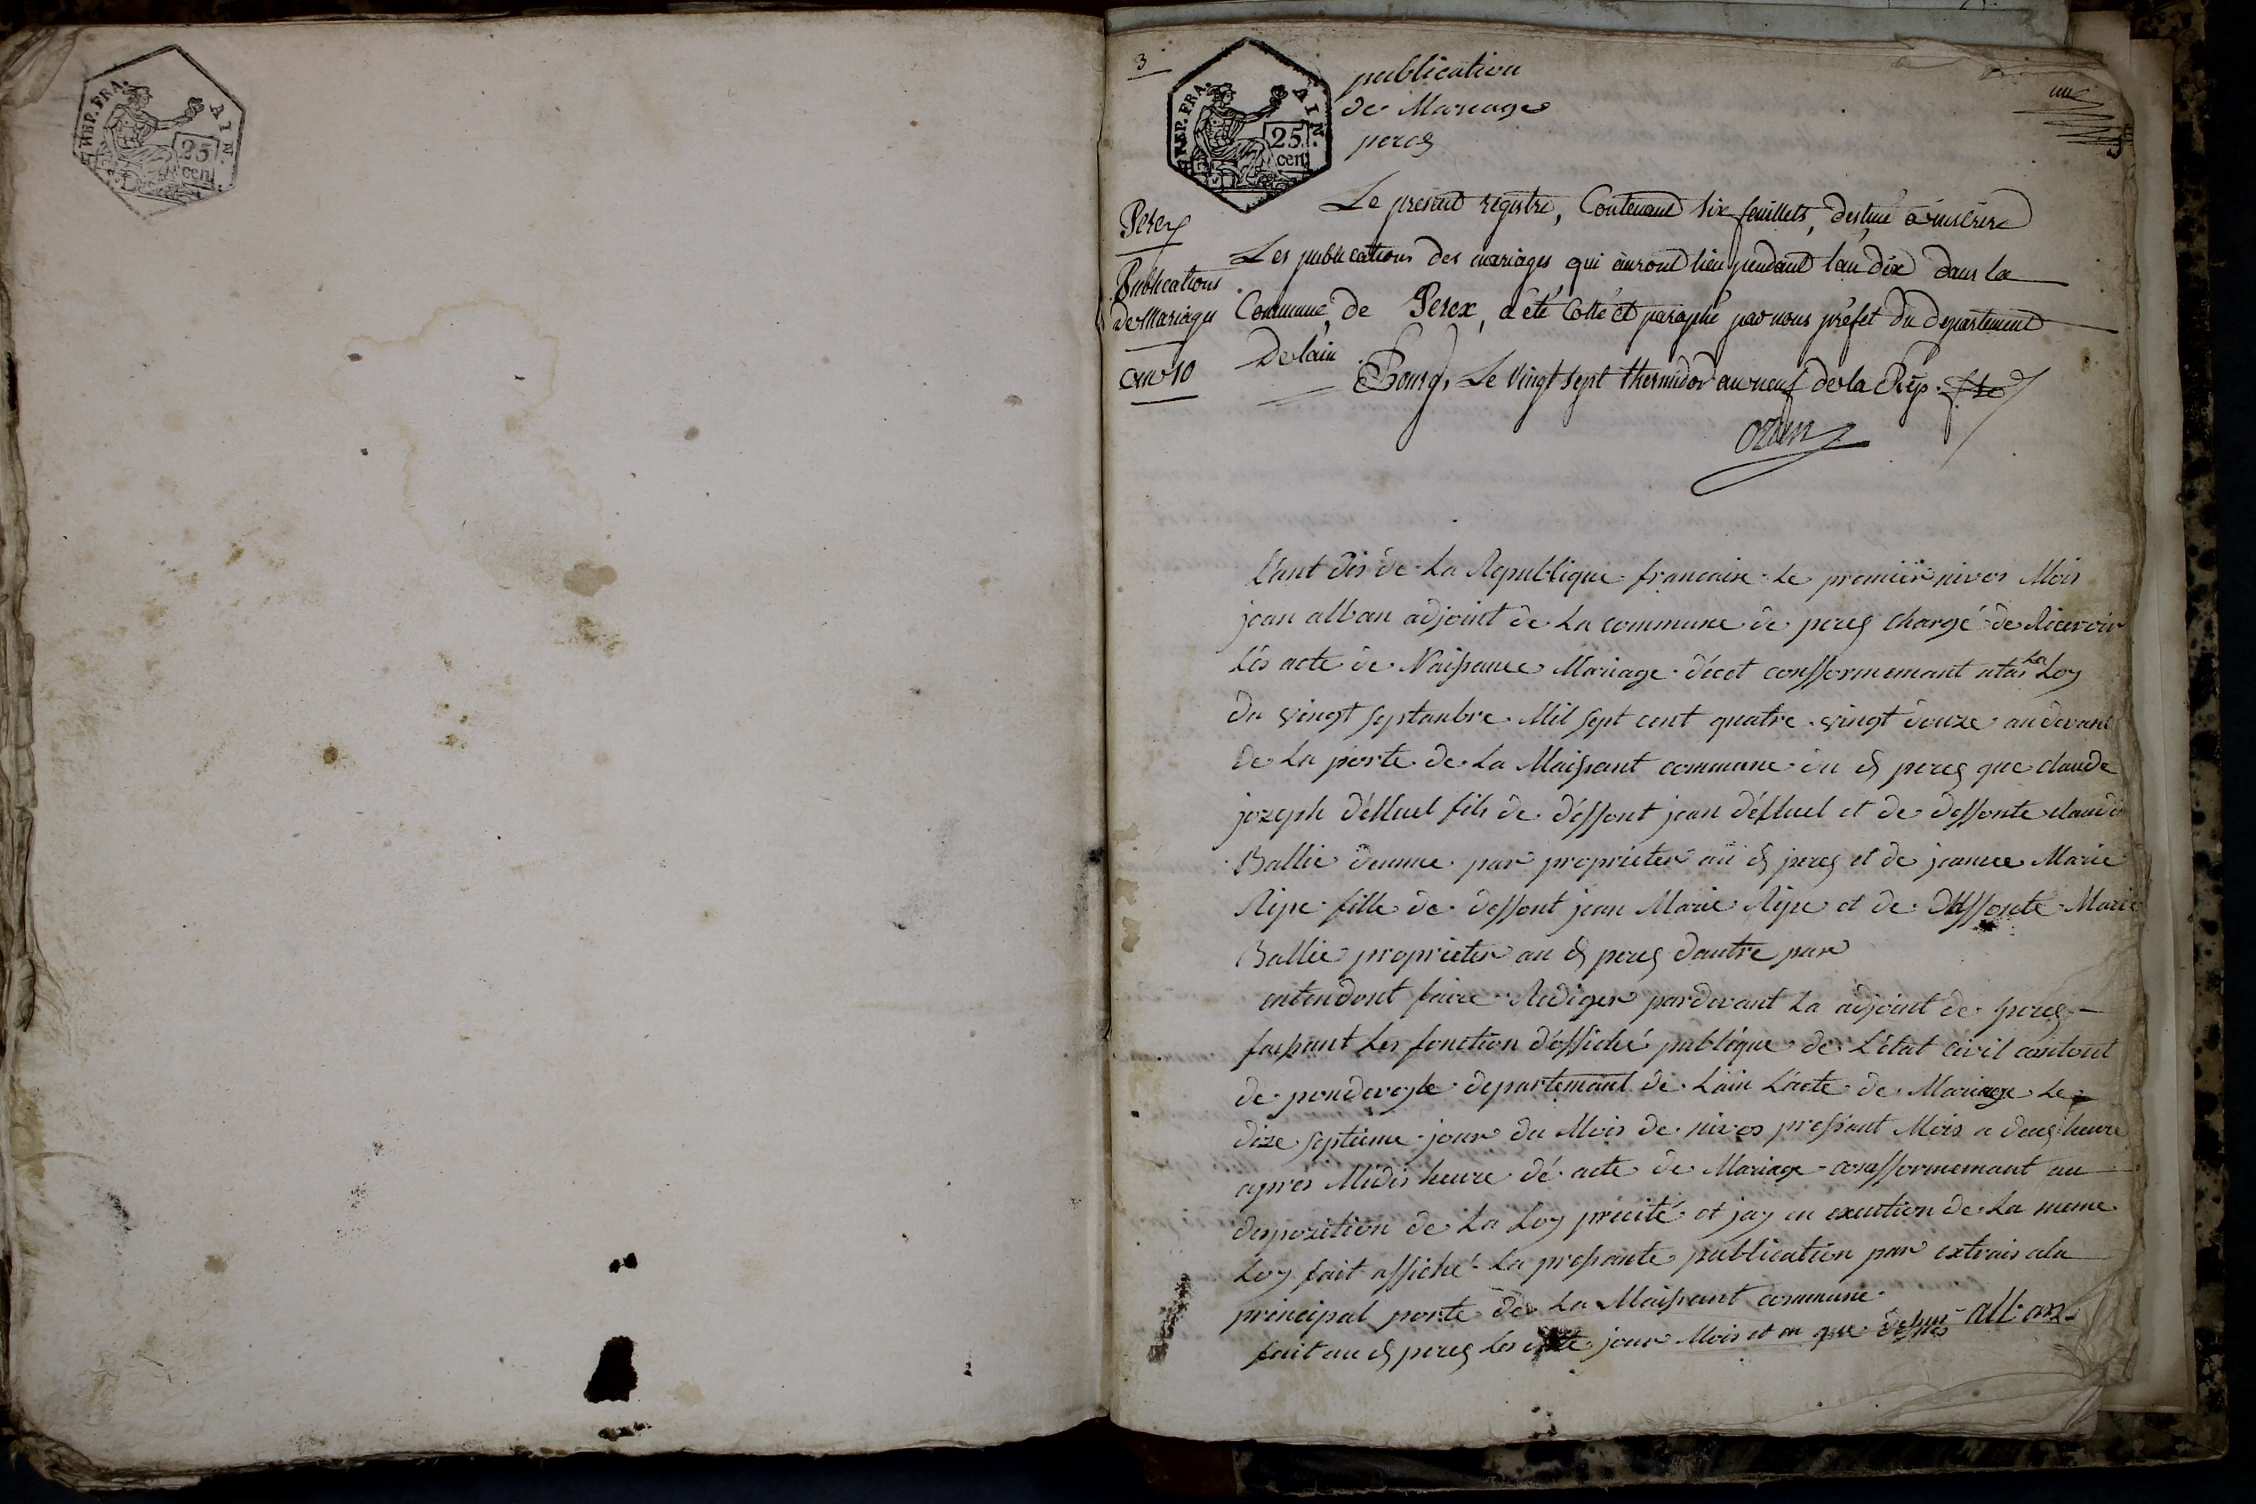 REP. FRA. AIN.
25
cen
3
REP. FRA. AIN.
25
cen
publication
de Mariage
perex
un
Perex
Publications
de Mariages
an 10
Le present registre, Contenant six feuillets, destiné à inserire
Les publications des mariages qui auront lieu pendant l'an dix dans la
Commune, de Perex, a été Cotté et paraphé par nous préfet du departement
De l'ain
Bourg, Le Vingt sept thermidor an neuf de la Rép. f.se
ozun
L'ant dis de La Republique francaise Le premiër nivos Mois
jean alban adjoint de La commune de perex chargé de Ricevoir
Lés acte de Naissance Mariage décet confformemant
La
Loy
du vingt septanbre Mil sept cent quatre vingt douze au devant
de La porte de La Maissant commune du d perex que claude
jozeph fils de déffont jean et de deffonte claudi
Ballie d'eunne par proprieter aü d perex et de jeanne Marie
Ripe fille de deffont jean Marie Ripe et de deffonte Marie
Ballie proprieter au d perex dautre par
entendont faire Rediger pardevant La adjoint de perex
faissant Les fonction d'offiché publéque de L'état civil contont
de pondeveyle departemant de L'ain L'acte de Mariage Le
dize septieme jour du Mois de nivos pressant Mois a deux heure
apres Midis heure dé acte de Mariage confformemant au
dispozition de La Loy précité et jay en exeution de La meme
Loy fait affiché La pressante publication par extrais a la
principal porte de La Maissant commune
fait au d perex Les jour Mois et an que dessus alban